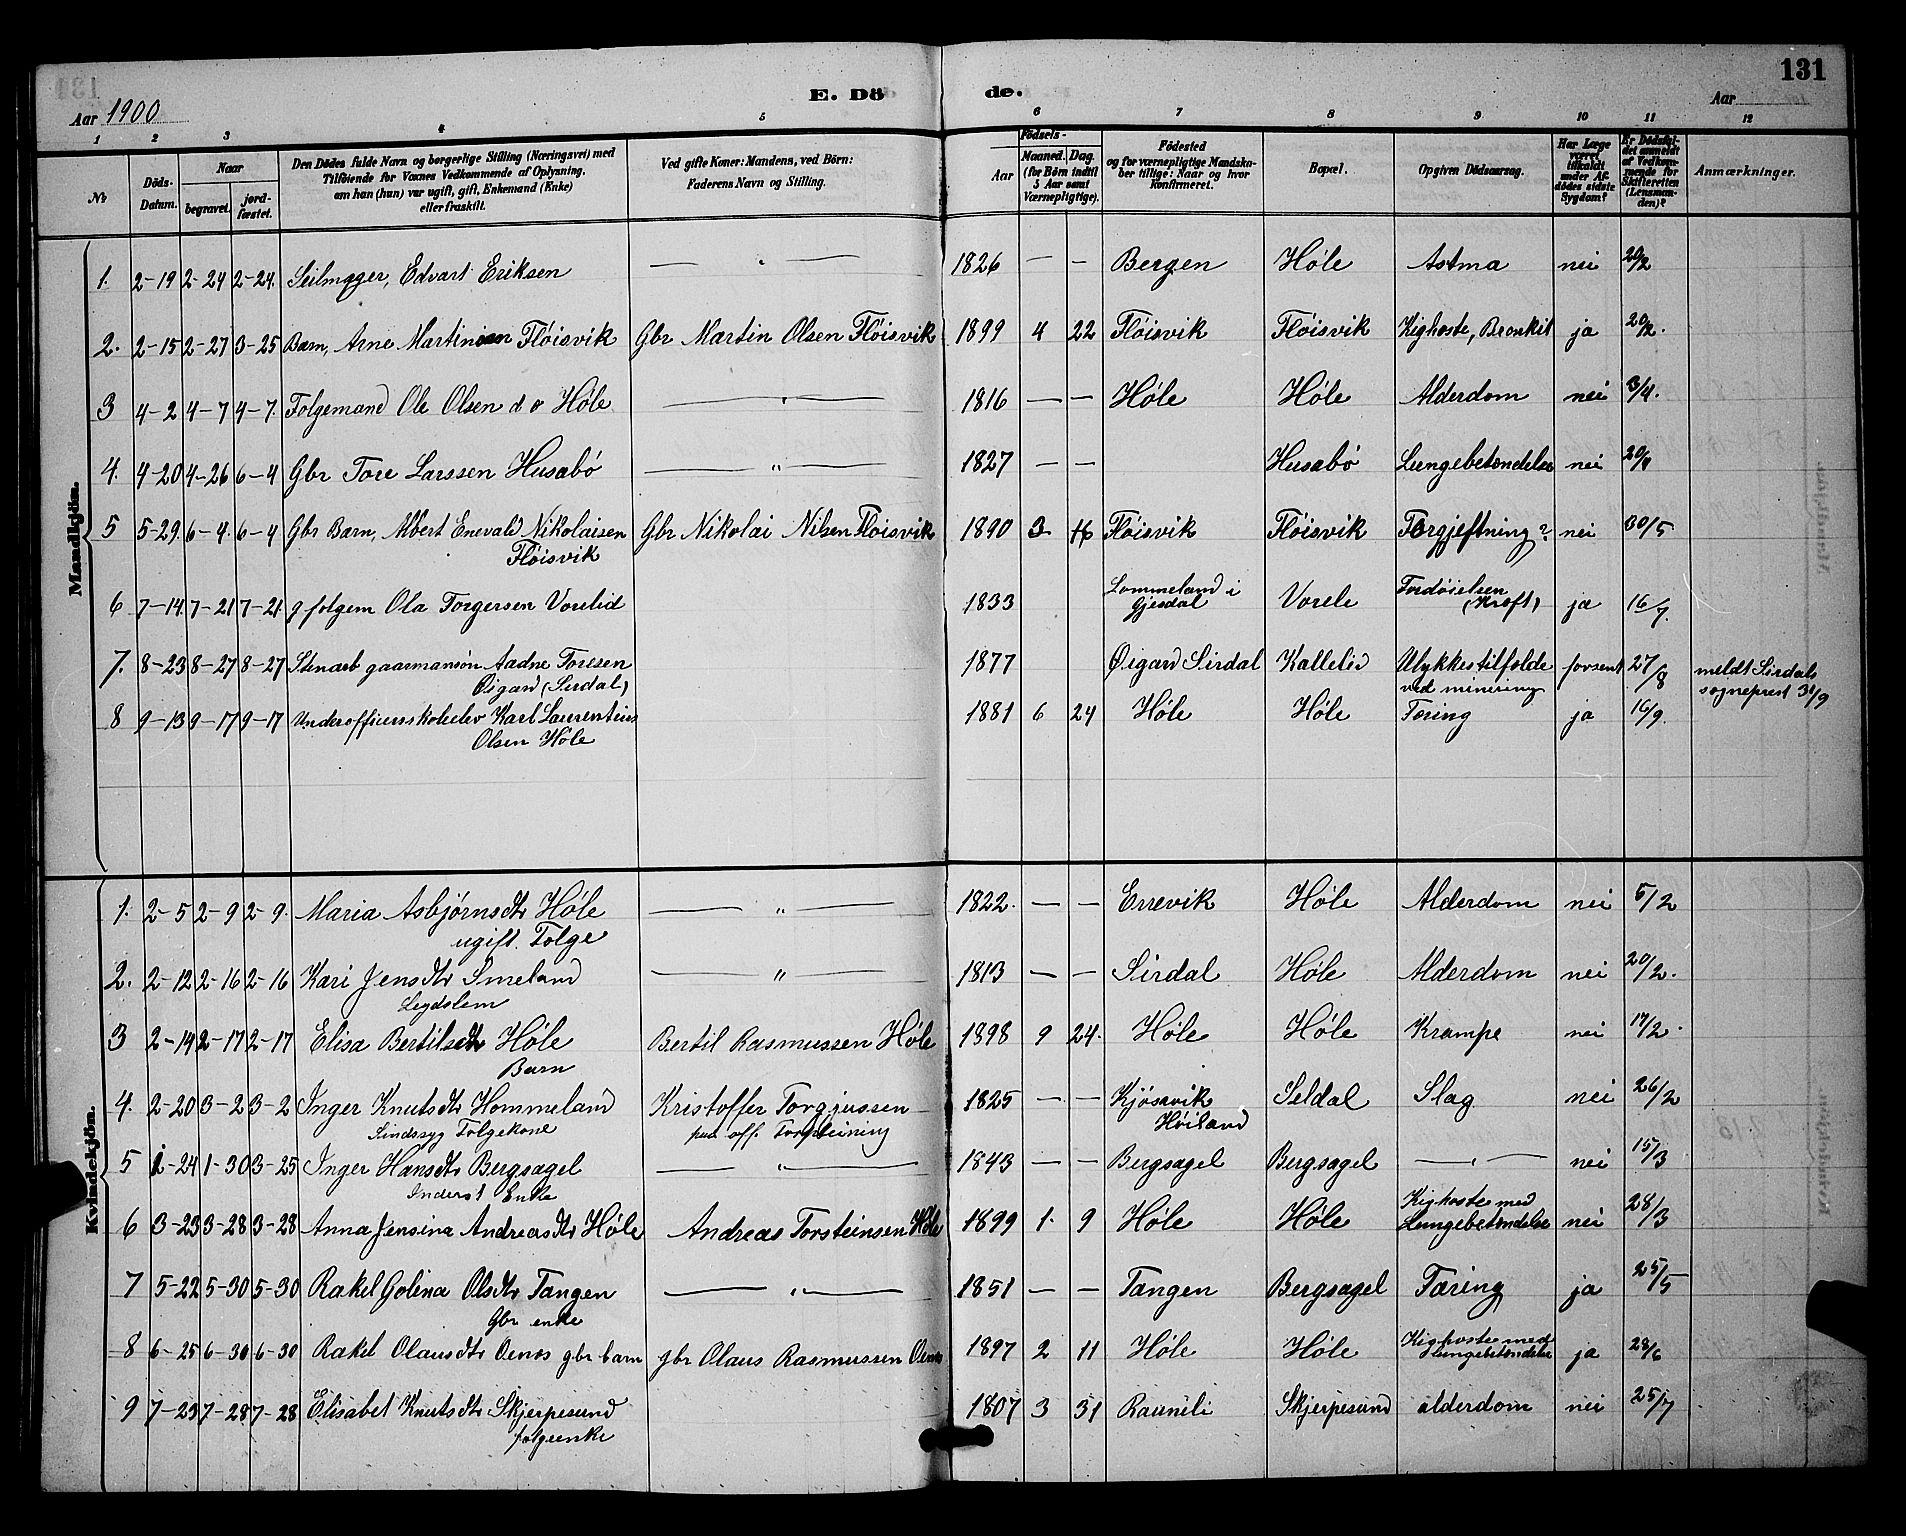 131
Aar 1900
E. Dö de.
Aar
1 2 3 4 5 6 7 8 9 10 11 12
№
Döds-Datum.
Naar
begravet.
jord-fæstet.
Den Dödes fulde Navn og borgerlige Stilling (Næringsvei) med
Tilföiende for Voxnes Vedkommende af Oplysning,
om han (hun) var ugift, gift, Enkemand (Enke)
eller fraskilt.
Ved gifte Koner: Mandens, ved Börn:
Faderens Navn og Stilling.
Födsels-
Aar
Maaned. Dag.
(for Börn indtil
5 Aar samt
Værnepligtige).
Födested
og for værnepligtige Mandska-
ber tillige: Naar og hvor
konfirmeret.
Bopæl.
Opgiven Dödsaarsag.
Har Læge
været
tilkaldt
under Af-
dödes sidste
Sygdom?
Er Dödsfal-
det anmeldt
af Vedkom-
mende for
Skifteretten
(Lensman-
den)?
Anmærkninger.
Mandkjön.
1. 2-19 2-24 2-24. Seilmager, Edvart Eriksen — " — 1826 — — Bergen Høle Astma nei 20/2
2. 2-15 2-27 3-25 Barn, Arne Martinsen Fløisvik Gbr Martin Olsen Fløisvik 1899 4 22 Fløisvik Fløisvik Kighoste, Bronkit ja 20/2.
3 4-2 4-7 4-7. Folgemand Ole Olsen d o Høle — " — 1816 — — Høle Høle Alderdom nei 3/4.
4. 4-20 4-26 6-4 Gbr Tore Larssen Husabø — " — 1827 — — Husabø Lungebetændelse nei 20/4
5 5-29. 6-4. 6-4 Gbr Barn, Albert Enevald Nikolaisen Gbr Nikolai Nilsen Fløisvik 1890 3 16 Fløisvik Fløisvik Forgjeftning? nei 30/5
Fløisvik
6 7-14 7-21 7-21. g folgem Ola Torgersen Vorelid 1833 Lommeland i Gjesdal Vorele Fordøielsen (Kræft) ja 16/7.
7. 8-23 8-27 8-27 Stenarb gaarmansøn Aadne Toresen 1877 Øigard Sirdal Kallelid Ulykkestilfælde forsent 27/8 meldt Sirdals
Øigard (Sirdal) ved minering sogneprest 31/9
8 9-13 9-17 9-17 Underofficersskoleelev Karl Laurentius 1881 6 24 Høle Høle Tæring ja 16/9.
Olsen Høle
Kvindekjön.
1. 2-5 2-9 2-9. Maria Asbjørnsdtr Høle — " — 1822. — — Errevik Høle Alderdom nei 5/2
ugift. Folge
2. 2-12 2-16 2-16 Kari Jensdtr Smeland — " — 1813 — — Sirdal Høle Alderdom nei 20/2.
Legdslem
3 2-14 2-17 2-17 Elisa Bertilsdtr Høle Bertil Rasmussen Høle 1898 9 24. Høle Høle Krampe nei 17/2.
Barn
4. 2-20 3-2 3-2 Inger Knutsdtr Hommeland Kristoffer Torgjussen 1825 — — Kjøsavik Seldal Slag nei 26/2
Sindssyg Folgekone paa off. Forpleining Høiland
5 1-24 1-30 3-25 Inger Hansdtr Bergsagel — " — 1843 — — Bergsagel Bergsagel — " — nei 15/3
Inderst Enke
6 3-23 3-28 3-28 Anna Jensina Andreasdtr Høle Andreas Torsteinsen Høle 1899 1. 9 Høle Høle Kighoste med Lungebetændelse nei 28/3
7 5-22 5-30 5-30 Rakel Golena Olsdtr Tangen — " — 1851 — — Tangen Bergsagel Tæring ja 25/5
Gbr enke
8 6-25 6-30 6-30 Rakel Olausdtr Oenes gbr barn gbr Olaus Rasmussen Oenes 1897 2 11 Høle Høle Kighoste med Lungebetændelse ja 28/6
9 7-23 7-28 7-28 Elisabet Knutsdtr Skjerpesund 1807 3 31 Rauneli Skjerpesund alderdom nei 25/7
folgeenke